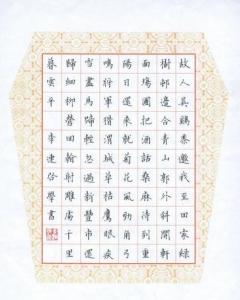 故人具鷄黍邀我至田家綠
樹邨邊合青山郭外斜開軒
面場圃把酒話桑麻待到重
陽日還來就菊花風勁角弓
鳴將軍獵渭城草枯鷹眼疾
雪盡馬蹄輕忽過新豐市還
歸細柳營回看射雕處千里
暮雲平 李連 學書